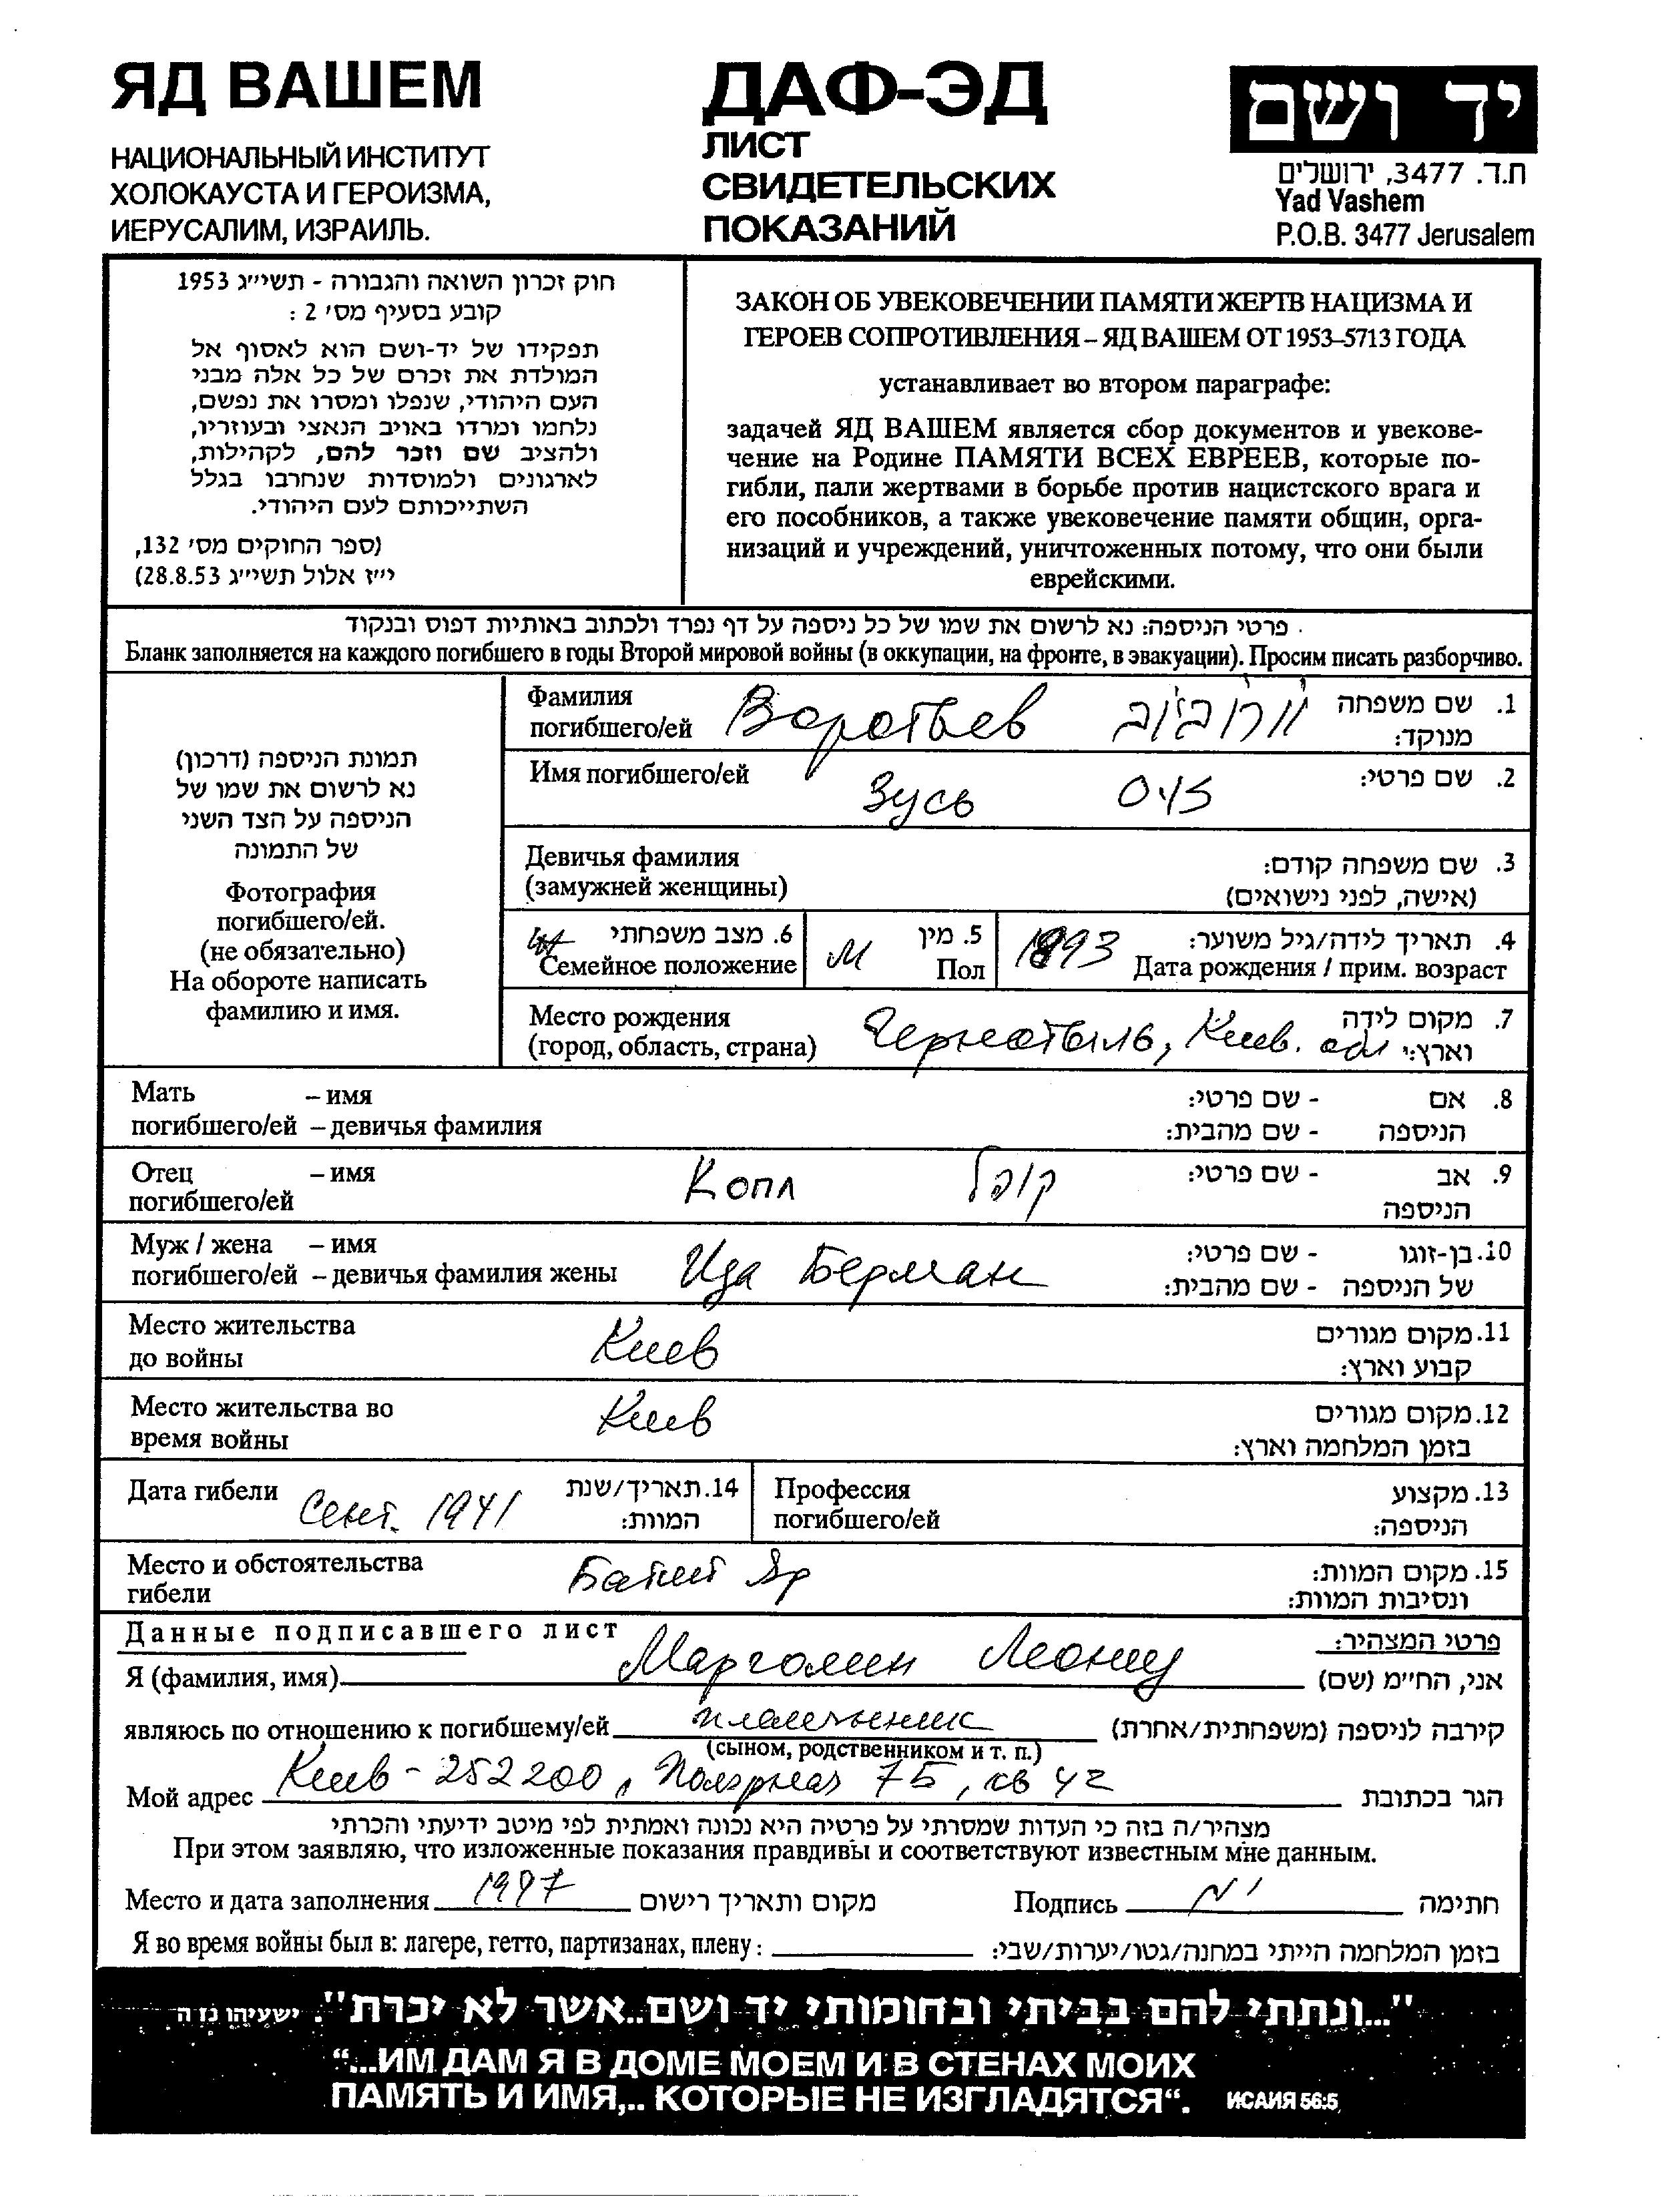 ЯД ВАШЕМ
НАЦИОНАЛЬНЫЙ ИНСТИТУТ
ХОЛОКАУСТА И ГЕРОИЗМА,
ИЕРУСАЛИМ, ИЗРАИЛЬ.
ДАФ-ЭД
ЛИСТ
СВИДЕТЕЛЬСКИХ
ПОКАЗАНИЙ
יד ושם
ת.ד. 3477, ירושלים
Yad Vashem
P.O.B. 3477 Jerusalem
חוק זכרון השואה והגבורה - תשי״ג 1953
קובע בסעיף מס׳ 2 :
תפקידו של יד-ושם הוא לאסוף אל
המולדת את זכרם של כל אלה מבני
העם היהודי, שנפלו ומסרו את נפשם,
נלחמו ומרדו באויב הנאצי ובעוזריו,
ולהציב שם וזכר להם, לקהילות,
לארגונים ולמוסדות שנחרבו בגלל
השתייכותם לעם היהודי.
(ספר החוקים מס׳ 132,
י״ז אלול תשי״ג 28.8.53)
ЗАКОН ОБ УВЕКОВЕЧЕНИИ ПАМЯТИ ЖЕРТВ НАЦИЗМА И
ГЕРОЕВ СОПРОТИВЛЕНИЯ – ЯД ВАШЕМ ОТ 1953–5713 ГОДА
устанавливает во втором параграфе:
задачей ЯД ВАШЕМ является сбор документов и увекове-
чение на Родине ПАМЯТИ ВСЕХ ЕВРЕЕВ, которые по-
гибли, пали жертвами в борьбе против нацистского врага и
его пособников, а также увековечение памяти общин, орга-
низаций и учреждений, уничтоженных потому, что они были
еврейскими.
פרטי הניספה: נא לרשום את שמו של כל ניספה על דף נפרד ולכתוב באותיות דפוס ובנקוד
Бланк заполняется на каждого погибшего в годы Второй мировой войны (в оккупации, на фронте, в эвакуации). Просим писать разборчиво.
תמונת הניספה (דרכון)
נא לרשום את שמו של
הניספה על הצד השני
של התמונה
Фотография
погибшего/ей.
(не обязательно)
На обороте написать
фамилию и имя.
Фамилия
погибшего/ей Воротьев
1. שם משפחה
מנוקד:
Имя погибшего/ей Зусь זיס 2. שם פרטי:
Девичья фамилия
(замужней женщины)
3. שם משפחה קודם:
(אישה, לפני נישואים)
6. מצב משפחתי
Семейное положение
М 5. מין
Пол
1893 4. תאריך לידה/גיל משוער:
Дата рождения / прим. возраст
Место рождения
(город, область, страна) Чернобыль, Киев. обл
7. מקום לידה
וארץ:
Мать – имя
погибшего/ей – девичья фамилия
8. אם - שם פרטי:
הניספה - שם מהבית:
Отец – имя Копл קופל
погибшего/ей
9. אב - שם פרטי:
הניספה
Муж / жена – имя
погибшего/ей – девичья фамилия жены Ида Берман
10. בן-זוגו - שם פרטי:
של הניספה - שם מהבית:
Место жительства
до войны Киев
11. מקום מגורים
קבוע וארץ:
Место жительства во
время войны Киев
12. מקום מגורים
בזמן המלחמה וארץ:
Дата гибели Сент. 1941
14. תאריך/שנת
המוות:
Профессия
погибшего/ей
13. מקצוע
הניספה:
Место и обстоятельства
гибели Бабий Яр
15. מקום המוות:
ונסיבות המוות:
Данные подписавшего лист פרטי המצהיר:
Я (фамилия, имя) Марголин Леонид אני, הח״מ (שם)
являюсь по отношению к погибшему/ей племянник קירבה לניספה (משפחתית/אחרת)
(сыном, родственником и т. п.)
Мой адрес Киев - 252200, Полярная 7Б, кв 42 הגר בכתובת
מצהיר/ה בזה כי העדות שמסרתי על פרטיה היא נכונה ואמתית לפי מיטב ידיעתי והכרתי
При этом заявляю, что изложенные показания правдивы и соответствуют известным мне данным.
Место и дата заполнения 1997 מקום ותאריך רישום Подпись חתימה
Я во время войны был в: лагере, гетто, партизанах, плену: בזמן המלחמה הייתי במחנה/גטו/יערות/שבי:
"...ונתתי להם בביתי ובחומותי יד ושם..אשר לא יכרת". ישעיהו נו ה
“...ИМ ДАМ Я В ДОМЕ МОЕМ И В СТЕНАХ МОИХ
ПАМЯТЬ И ИМЯ,.. КОТОРЫЕ НЕ ИЗГЛАДЯТСЯ“. ИСАИЯ 56:5